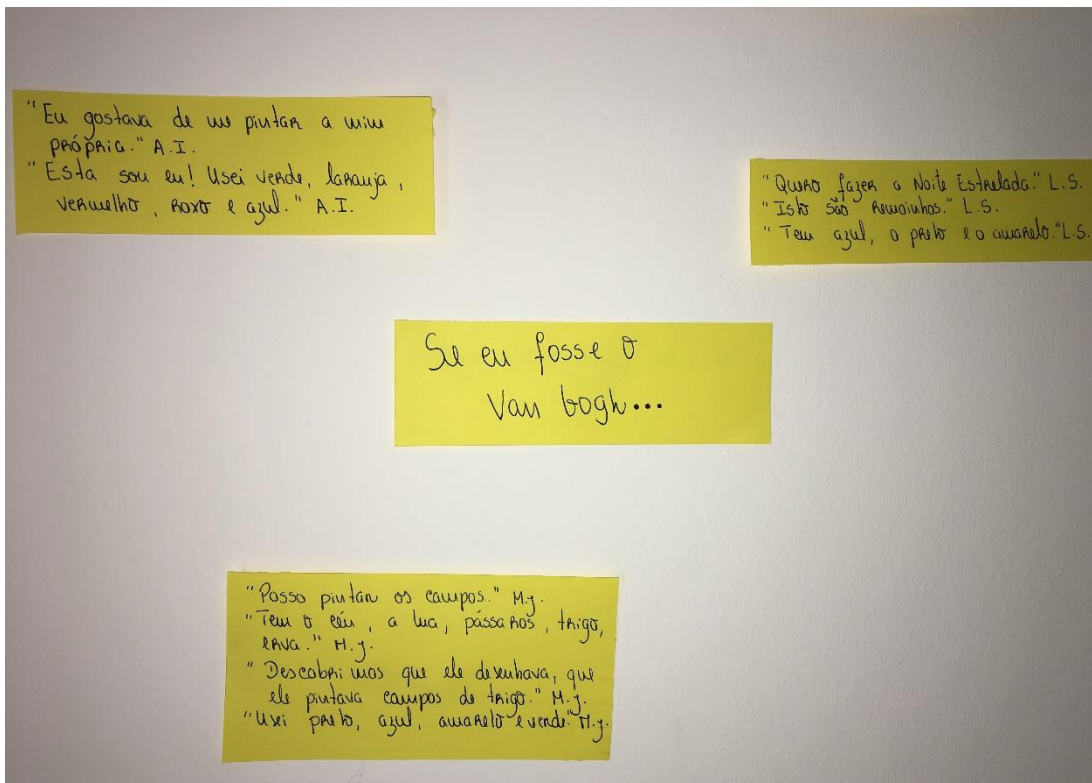 "Eu gostava de me pintar a mim
própria." A.I.
"Esta sou eu! Usei verde, laranja,
vermelho, roxo e azul." A.I.
"Quero fazer a Noite Estrelada." L.S.
"Isto são remoinhos." L.S.
"Tem azul, o preto e o amarelo." L.S.
Se eu fosse o
Van Gogh...
"Posso pintar os campos." M.J.
"Tem o céu, a lua, pássaros, trigo,
erva." M.J.
"Descobrimos que ele desenhava, que
ele pintava campos de trigo." M.J.
"Usei preto, azul, amarelo e verde" M.J.